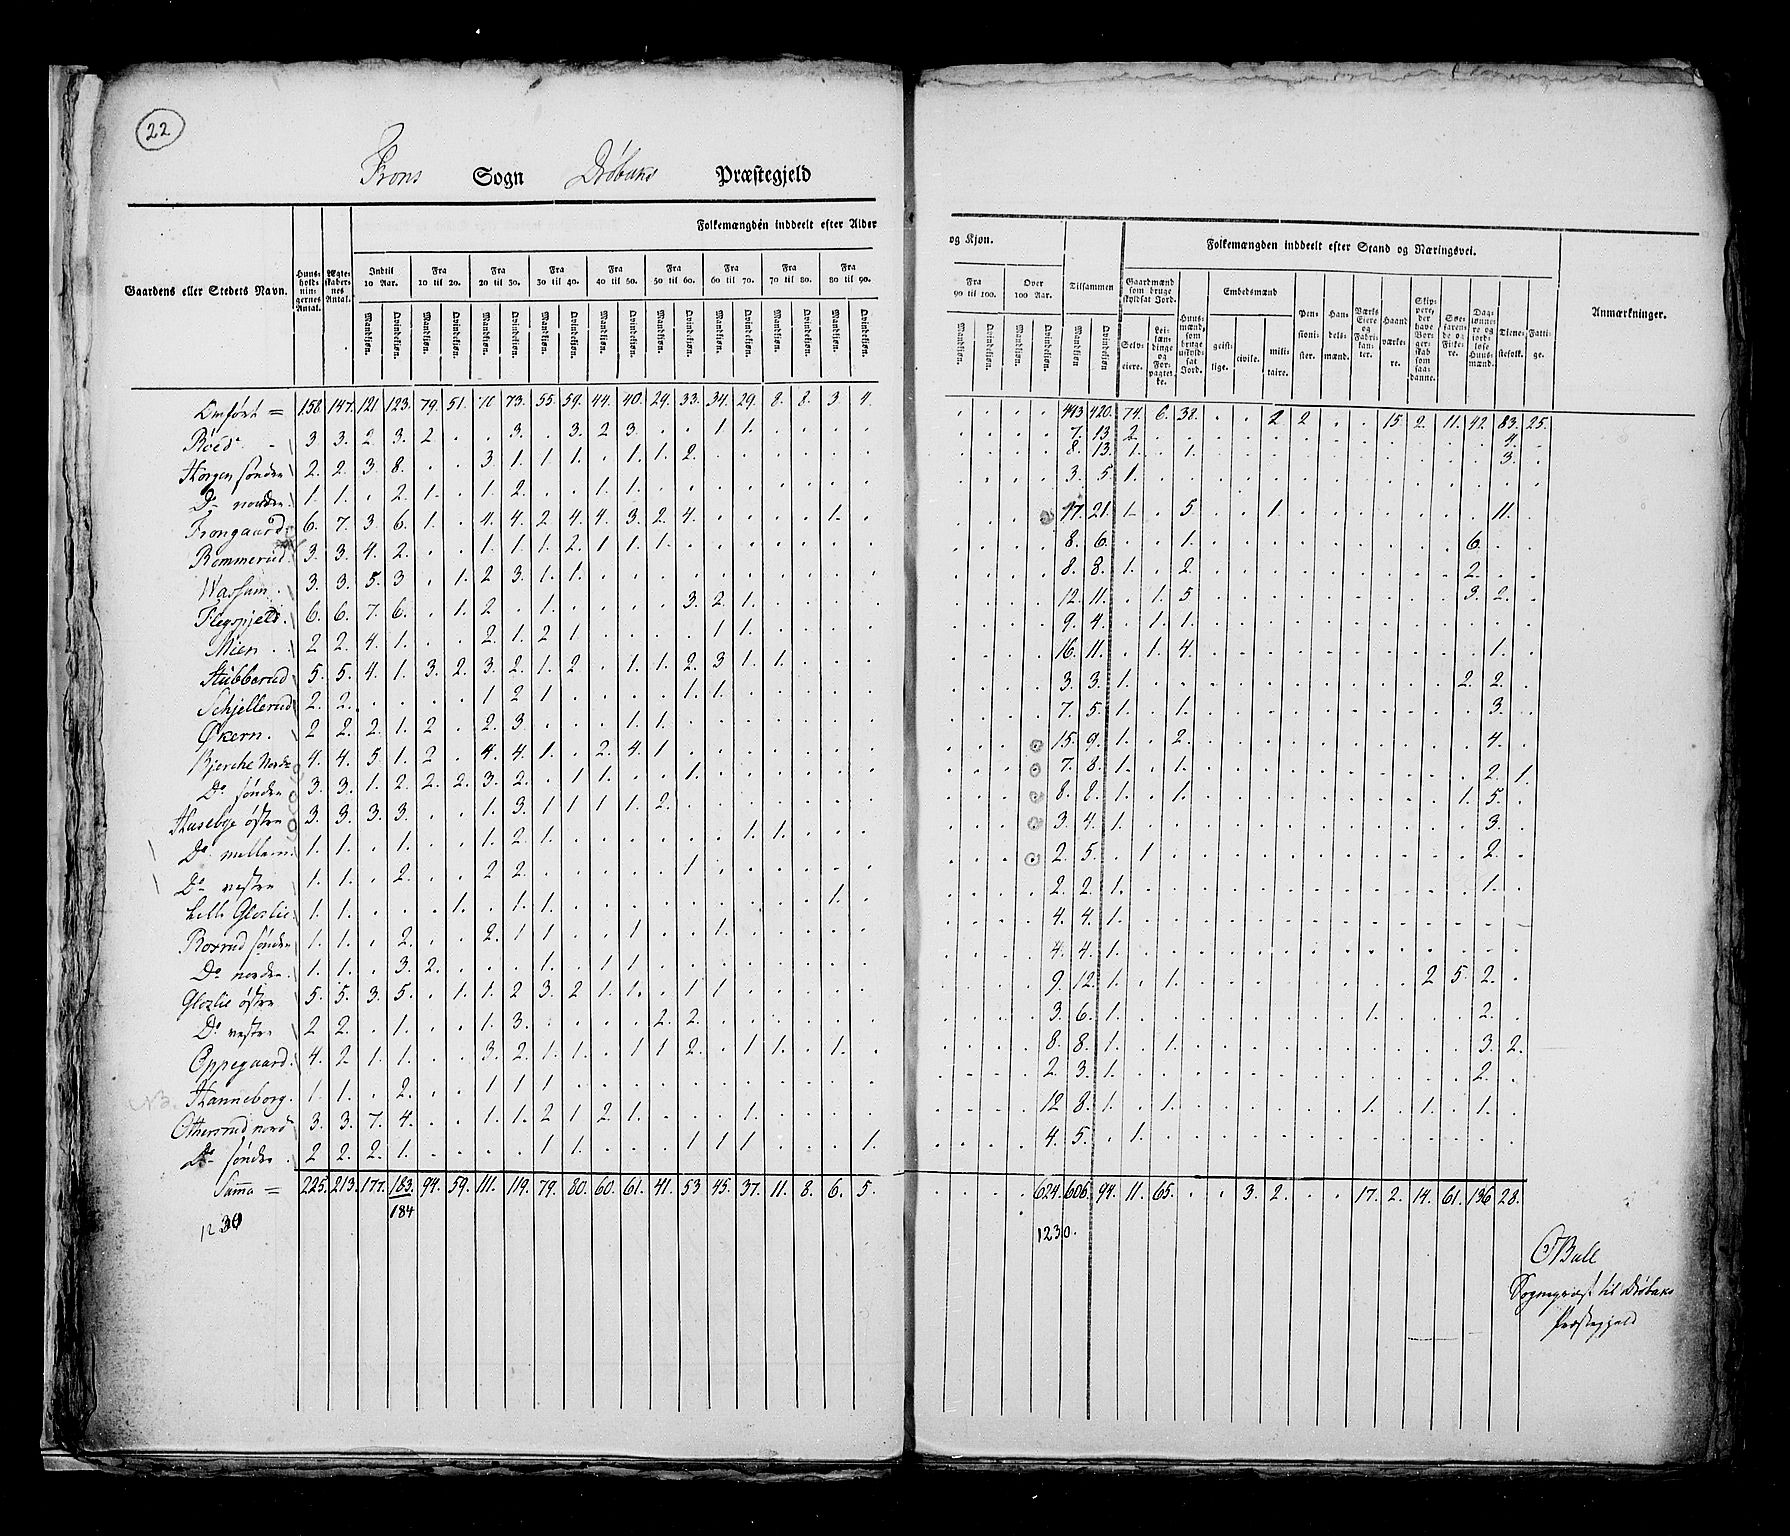 22
Frons Sogn Drøbaks Præstegjeld
Gaardens eller Stedets Navn. Huus-holdningernes Antal. Ægteskabernes Antal. Folkemængden inddeelt efter Alder
Indtil 10 Aar. Fra 10 til 20. Fra 20 til 30. Fra 30 til 40. Fra 40 til 50. Fra 50 til 60. Fra 60 til 70. Fra 70 til 80. Fra 80 til 90.
Mandkiøn. Qvindekiøn. Mandkiøn. Qvindekiøn. Mandkiøn. Qvindekiøn. Mandkiøn. Qvindekiøn. Mandkiøn. Qvindekiøn. Mandkiøn. Qvindekiøn. Mandkiøn. Qvindekiøn. Mandkiøn. Qvindekiøn. Mandkiøn. Qvindekiøn.
Omført = 158 147. 121 123. 79. 51. 70 73. 55. 59. 44. 40. 29. 33. 34. 29. 8. 8. 3 4.
Røed 3 3. 2. 3. 2 . . 3. . 3. 2 3. . . 1 1. . . . .
Horgen søndre 2. 2. 3 8. . . 3 1. 1. 1. . 1. 1. 2. . . . . . .
Do nordre 1. 1. . 2. 1. . 1. 2. . . 1. 1. . . . . . . . .
Frongaard 6. 7. 3 6. 1. . 4. 4. 2 4. 4. 3. 2. 4. . . . . 1. .
Rommerud 3. 3. 4. 2. . . 1. 1. 1. 2. 1 1. 1. . . . . . . .
Wassum. 3. 3. 5. 3 . 1. 2 3. 1. 1. . . . . . . . . . .
Flegspjeld. 6. 6. 7. 6. . 1. 2. . 1. . . . . 3. 2. 1. . . . .
Mien. 2. 2. 4. 1. . . 2. 1. 2 1 . . . . 1 1. . . . .
Stubberud 5. 5. 4. 1. 3 2. 3. 2. 1. 2 . 1. 1. 2. 3 1. 1. . . .
Schjellerud 2. 2. . . . . 1 2 1 . . . . 1. 1. . . . . .
Økern. 2 2. 2. 1. 2 . 2. 3 . . . 1. 1. . . . . . . .
Bjerche Nordre 4. 4. 5. 1. 2 . 4. 4. 1. . 2. 4. 1 . . . . . . .
Do søndre 3. 3. 1. 2. 2. 2. 3. 2. . 1 1. . . 1. . . . . . .
Husebye østre 3. 3. 3. 3. . . 1. 3. 1 1 1 1. 2. . . . . . . .
Do mellem. 1. 1. . 1. . . 1. 2. 1. . . . . . . 1. 1. . . .
Do vestre 1. 1. . 2. . . 2 2. . . . . . 1 . . . . . .
Lille Glosli 1. 1. . . . 1. . 1. 1. . . . . . . . . . 1. .
Borrud søndre 1. 1. . 2. . . 2. 1 1. . . 1. . . 1. . . . . .
Do nordre. 1. 1. . 3. 2. . . . 1. . 1 1. . . . . . . . .
Glosli østre 5. 5. 3. 5. . 1. 1. 2 3. 2 1. 1. . 1 1. . . . . .
Do vestre 2 2. . 1. . . 1. 3. . . . . 2. 2. . . . . . .
Oppegaard. 4. 2. 1. 1. . . 3. 2. 1. 1. . 1. 1 2. . 1. 1. . 1. .
Hanneborg. 1. 1. . 2. . . 1 1 1. . . . . . . . . . . .
Ottersrud nord 3. 3. 7. 4. . . 1. 1. 2 1. 2. 1. . . . 1. . . . .
Do søndre 2 2. 2. 1. . . . . 1 1. . . . 1 1 1. . . . 1.
Summa = 225. 213. 177. 183. 94. 59. 111. 119. 79. 80. 60. 61. 41. 53 45. 37. 11. 8. 6. 5.
184
1230
og Kjøn. Tilsammen Folkemængden inddeelt efter Stand og Næringsvei. Anmærkninger.
Fra 90 til 100. Over 100 Aar. Gaardmænd som bruge skyldsat Jord. Huusmænd, som bruge uskyldsat Jord. Embedsmænd Pensionister. Handelsmænd. Værks Eiere og Fabrikanter. Haandværkere. Skippere, der have Borgerskab som saadanne. Søefarende og Fiskere. Daglønnere og jordløse Huusmænd. Tienestefolk. Fattige.
Mandkiøn. Qvindekiøn. Mandkiøn. Qvindekiøn. Mandkiøn Qvindekiøn Selveiere. Leilændinge og Forpagtere. geistlige. civile. militaire.
. . . . 443 420. 74. 6. 38. . . 2 2 . . 15. 2. 11. 42 83. 25.
. . . . 7. 13. 2. 4.
. . . . 8. 13. 1. . 1. 3.
. . . . 3. 5. 1.
. . . 17. 21. 1. . 5. . . 1. 11.
. . . . 8. 6. . . 1. 6.
. . . . 8. 8. 1. . 2. 2.
. . . . 12. 11. . 1. 5 3. 2.
. . . . 9. 4. . 1. 1.
. . . . 16. 11. . 1. 4. 1.
. . . . 3. 3. 1. 2. 2.
. . . . 7. 5. 1. . 1. 3.
. . . 15. 9. 1. . 2. 4.
. . . 7. 8. 1. . 1. 2. 1.
. . . 8. 8. 1. . 1. 1. 5.
. . . 3. 4. 1. 3.
. . . 2. 5. . 1 2.
. . . . 2. 2. 1. 1.
. . . . 4. 4. 1.
. . . . 4. 4. 1.
. . . . 9. 12. 1. . 1. 2 5. 2.
. . . . 3. 6. 1. 1. 2.
. . . . 8. 8. 1. . 1. 3. 2.
. . . . 2. 3. 1. 2.
. . . . 12 8. 1. . 1. 1. 1. 1.
. . . . 4. 5. . 1.
. . . . 624. 606. 94. 11. 65. . . 3. 2. . . 17. 2. 14. 61. 136 28.
1230.
Bull
Sogneprest til Drøbaks
Præstegjeld